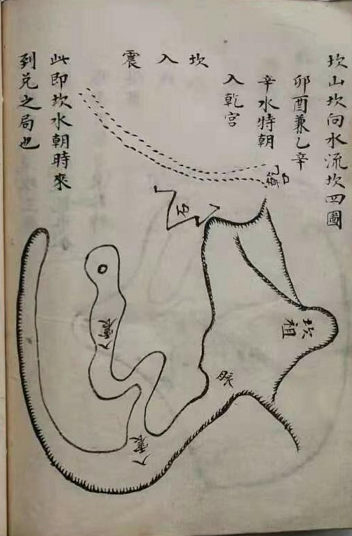 坎山坎向水流坎四圖
卯酉兼乙辛
辛水特朝
入乾宮
坎入震
此即坎水朝時來
到兌之局也
坎祖
入震
入震